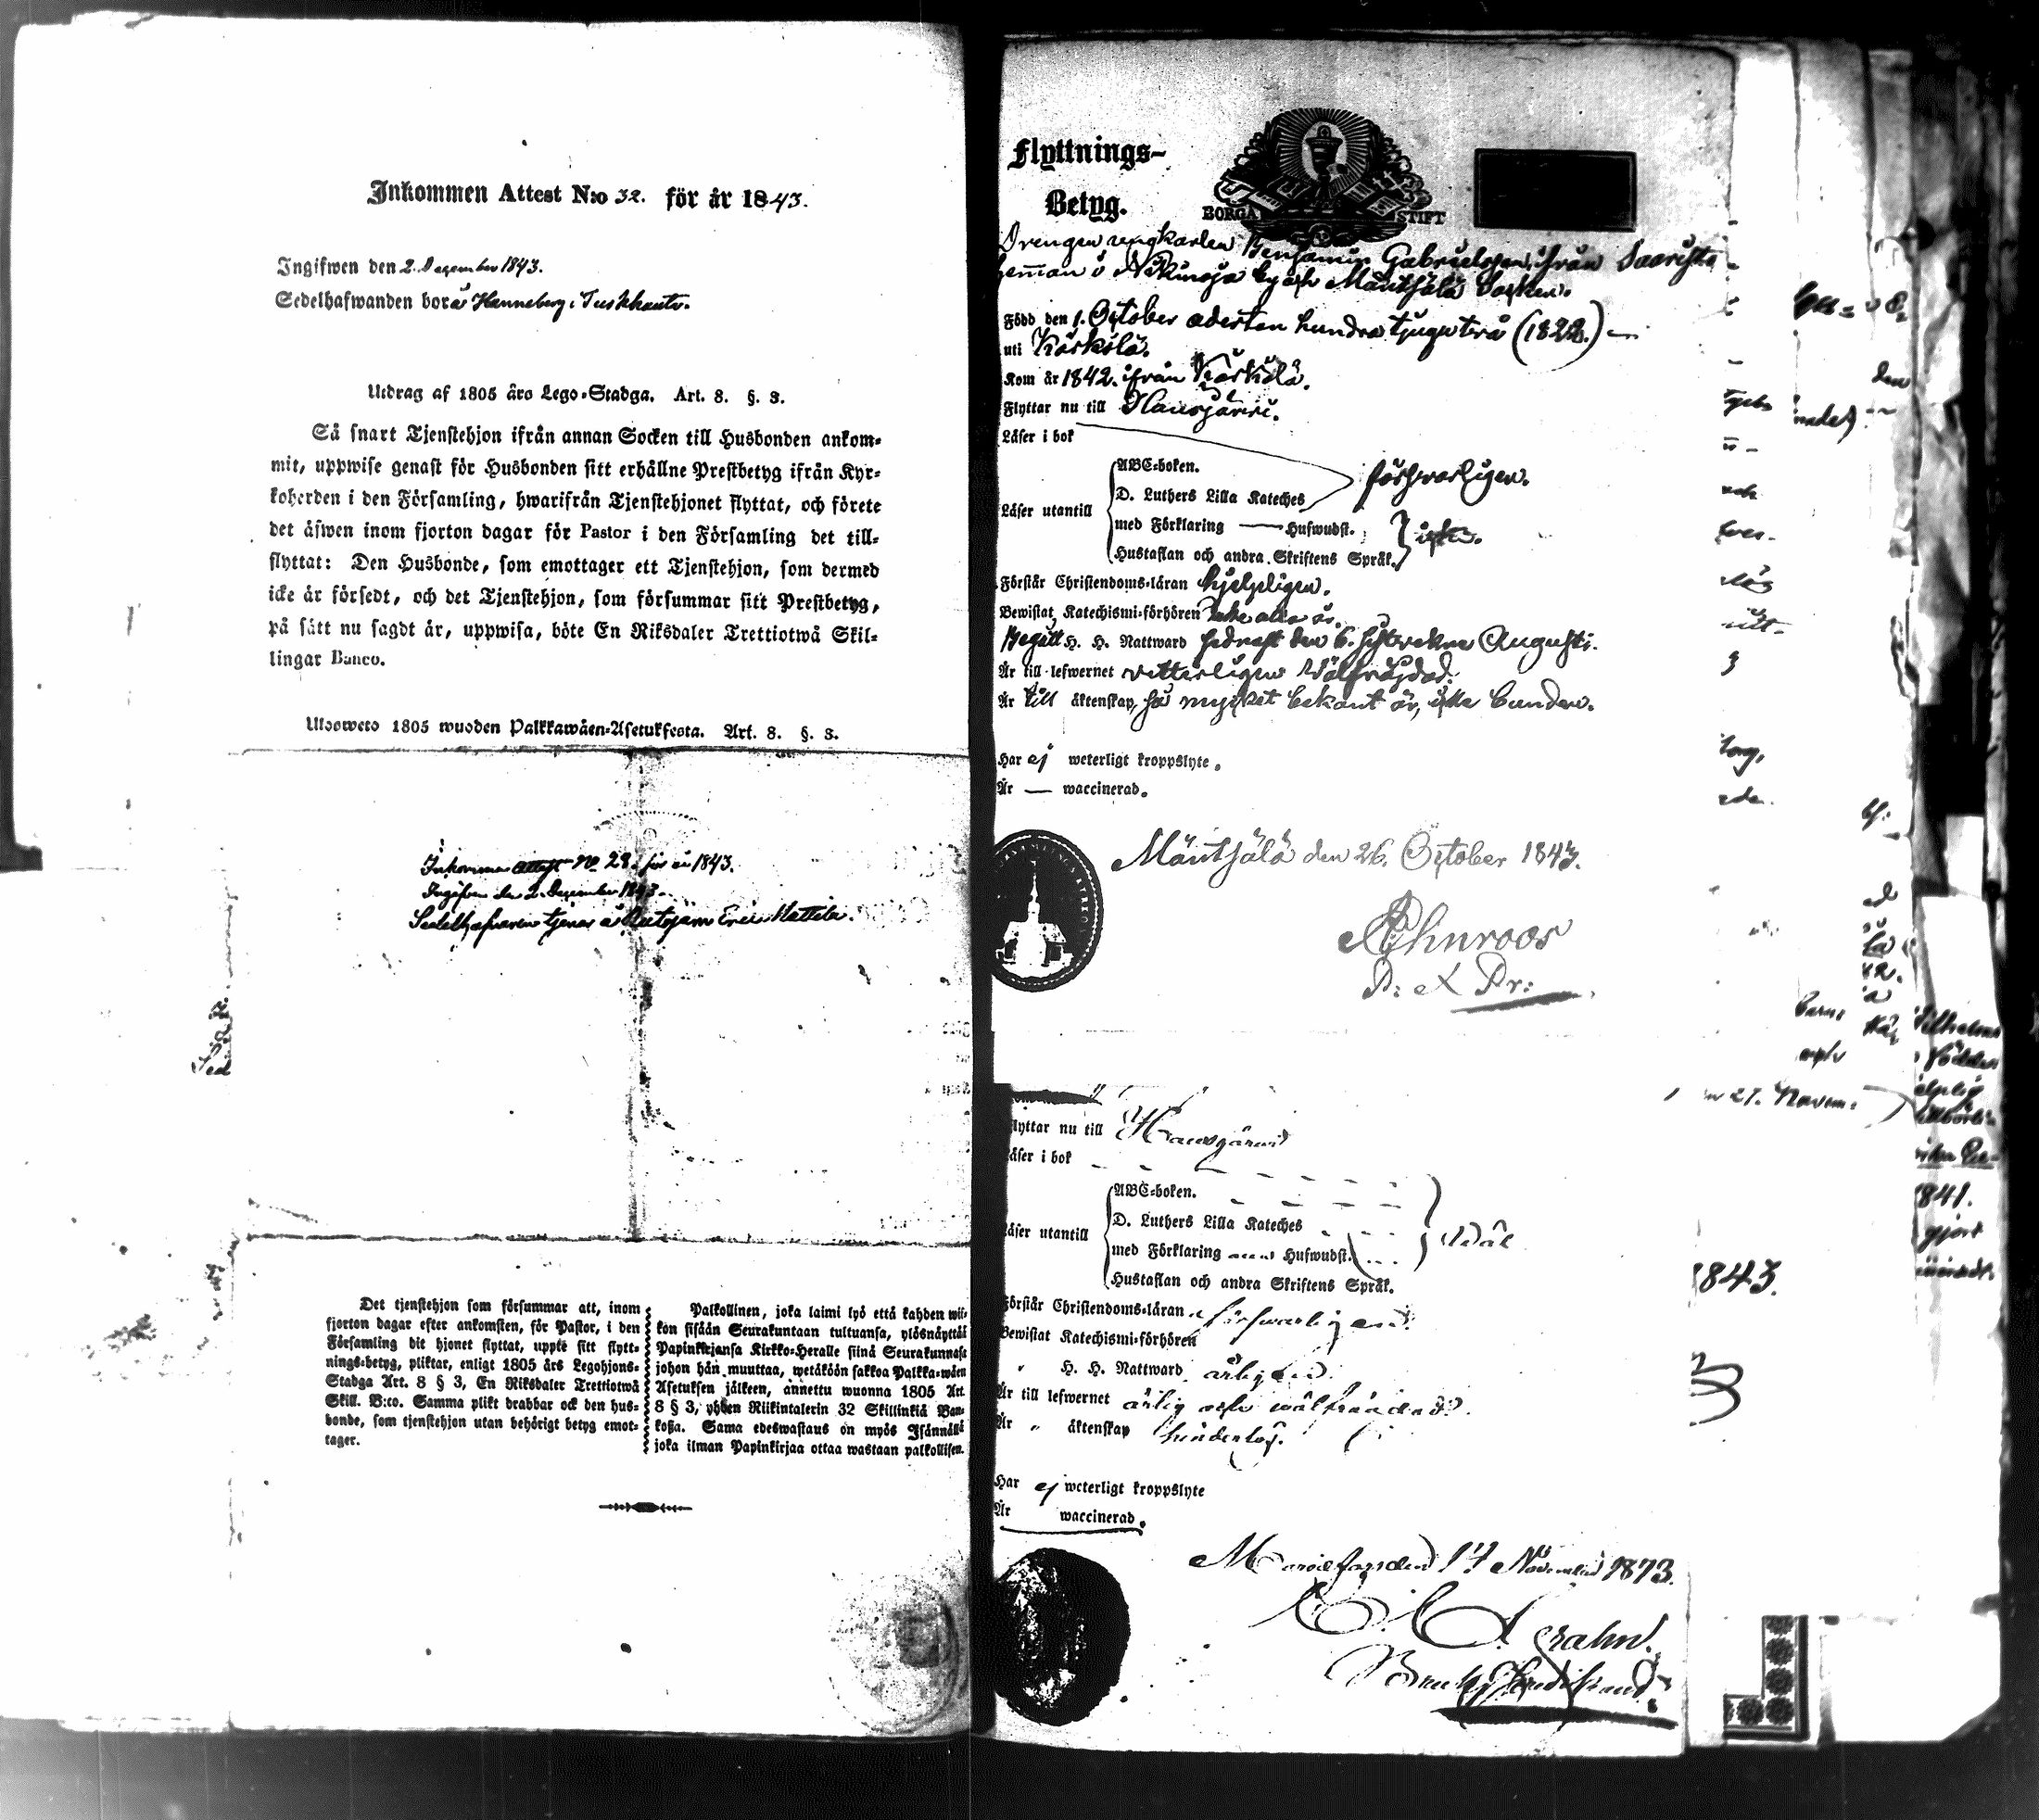 Inkommen Attest N:o 32. för år 1843.
Ingifwen den 2. December 1843.
Sedelhafwanden bor å Hanneberg i Tuskkanto.
Utdrag af 1805 års Lego-Stadga. Art. 8. §. 3.
Så snart Tjenstehjon ifrån annan Socken till Husbonden ankom-
mit, uppwise genast för Husbonden sitt erhållne Prestbetyg ifrån Kyr-
koherden i den Församling, hwarifrån Tjenstehjonet flyttat, och förete
det äfwen inom fjorton dagar för Pastor i den Församling det till-
flyttat: Den Husbonde, som emottager ett Tjenstehjon, som dermed
icke är försedt, och det Tjenstehjon, som försummar sitt Prestbetyg,
på sätt nu sagdt är, uppwisa, böte En Riksdaler Trettiotwå Skil-
lingar Banco.
Ulosweto 1805 wuoden Palkkawäen-Asetuksesta. Art. 8. §. 3.
Inkommen Attest No 28. för år 1843.
Ingifven den 2. December 1843.
Sedelhafvaren tjenar å Eric Mattila.
Det tjenstehjon som försummar att, inom
fjorton dagar efter ankomsten, för Pastor, i den
Församling dit hjonet flyttat, uppte sitt flytt-
nings-betyg, pliktar, enligt 1805 års Legohjons-
Stadga Art. 8 § 3, En Riksdaler Trettiotwå
Skill. B:co. Samma plikt drabbar ock den hus-
bonde, som tjenstehjon utan behörigt betyg emot-
tager.
Palkollinen, joka laimi lyö että kahden wii-
kon sisään Seurakuntaan tultuansa, ylösnäyttää
Papinkirjansa Kirkko-Heralle siinä Seurakunnasa
johon hän muuttaa, wetäköön sakkoa Palkka-wäen
Asetuksen jälkeen, annettu wuonna 1805 Art.
8 § 3, yhden Riikintalerin 32 Skillinkiä Ban-
kosa. Sama edeswastaus on myös Isännällä
joka ilman Papinkirjaa ottaa wastaan palkollisen.
Flyttnings-
Betyg.
BORGÅ STIFT
Drengen ungkarlen Benjamin Gabrielsson, ifrån Saaristo
hemman i Nikinoja by och Mäntsälä Socken.
Född den 1. October adertan hundra tjugutvå (1822.)
uti Kärkölä.
Kom år 1842. ifrån Kärkölä.
Flyttar nu till Hausjärvi.
Läser i bok
ABC-boken.
D. Luthers Lilla Kateches försvarligen.
Läser utantill
med Förklaring — Hufwudst.
Hustaflan och andra Skriftens Språk. icke.
Förstår Christendoms-läran hjelpligen.
Bewistat Katechismi-förhören icke alla år.
Begått H. H. Nattward sednast den 6. sistvekne Augusti.
Är till lefwernet vitterligen wälfrägdad.
Är till äktenskap, så mycket bekant är, icke bunden.
Har ej weterligt kroppslyte.
Är — waccinerad.
Mäntsälä den 26. October 1843.
Ahnroos
Flyttar nu till Hausjärvi
Läser i bok
ABC-boken.
D. Luthers Lilla Kateches
Läser utantill
med Förklaring Hufwudst. Wäl
Hustaflan och andra Skriftens Språk.
Förstår Christendoms-läran försvarligen.
Bewistat Katechismi-förhören
" H. H. Nattward årligen.
Är till lefwernet ärlig och wälfrägdad.
Är " äktenskap hinderlös.
Har ej weterligt kroppslyte
Är waccinerad.
November 1873.
1843.
27. Novem-
1841.
gjort